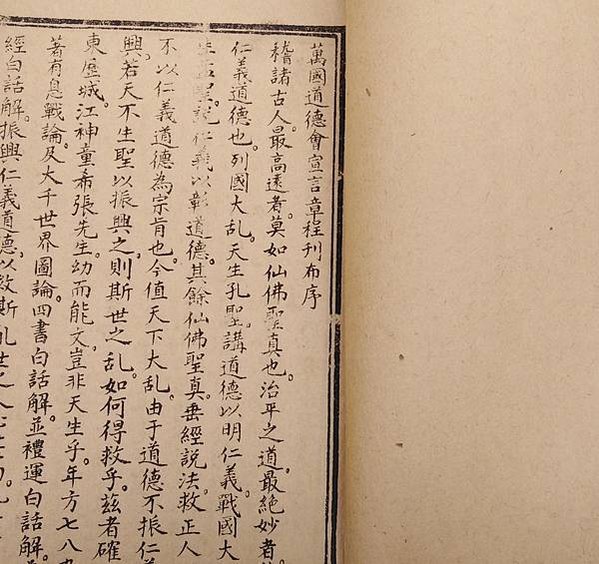 萬國道德會宣言章程刊布序
稽諸古人。最高遠者。莫如仙佛聖真也。治平之道。最絶妙者
仁義道德也。列國大乱。天生孔聖。講道德以明仁義。戰國大
聖。説仁義以彰道德。其餘仙佛聖真。垂經説法。救正人
不以仁義道德為宗肯也。今值天下大乱。由于道德不振。仁義
興。若天不生聖以振興之。則斯世之乱。如何得救乎。茲者確
東歷城。江神童希張先生。幼而能文。豈非天生乎。年方七八
著有息戰論。及大千世界圖論。四書白話解。並禮運白話解
經白話解。振興仁義道德。以救斯乱世之人心